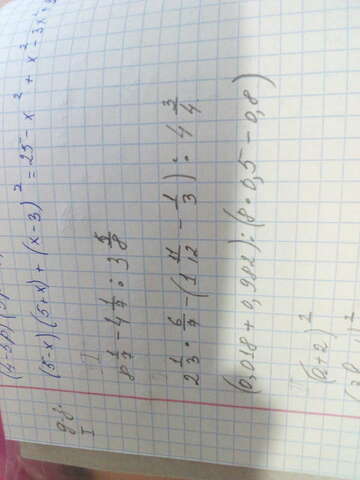 (5-x)(5+x)+(x-3)² = 25-x²+x²-3x
I
8 1/7 - 4 1/4 : 3 5/8
2 1/3 · 6/7 - (1 11/12 - 1/3) : 4 3/4
(0,018+0,982):(8·0,5-0,8)
(a+2)²